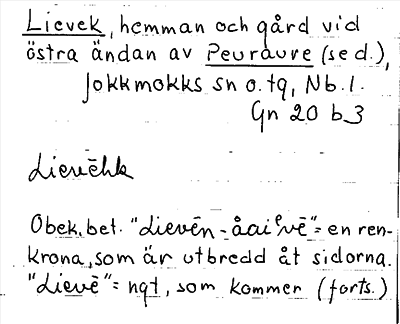 Lievek, hemman och gård vid
östra ändan av Peuraure (se d.),
Jokkmokks sn o. tg, Nb. l.
Gn 20 b 3
Lievēhk
Obek. bet. "Lievēn-åaiˈvē" = en ren-
krona, som är utbredd åt sidorna.
"Lievē" = ngt, som kommer (forts.)